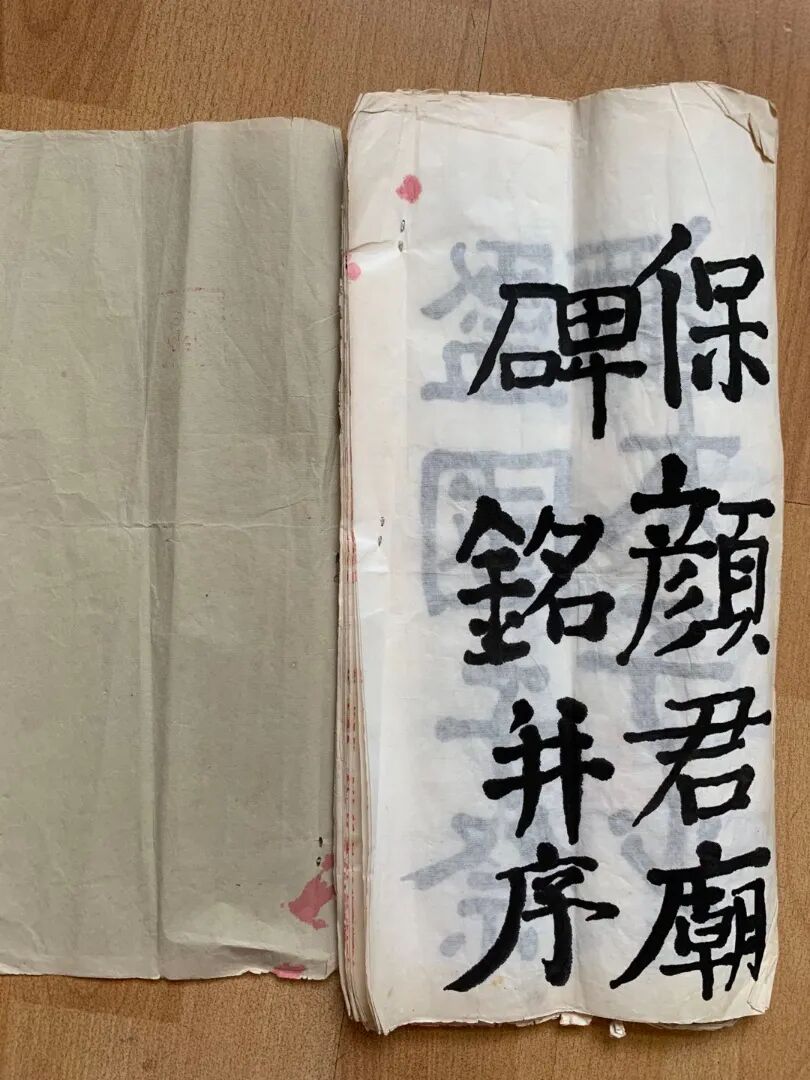 保顔君廟
碑銘并序